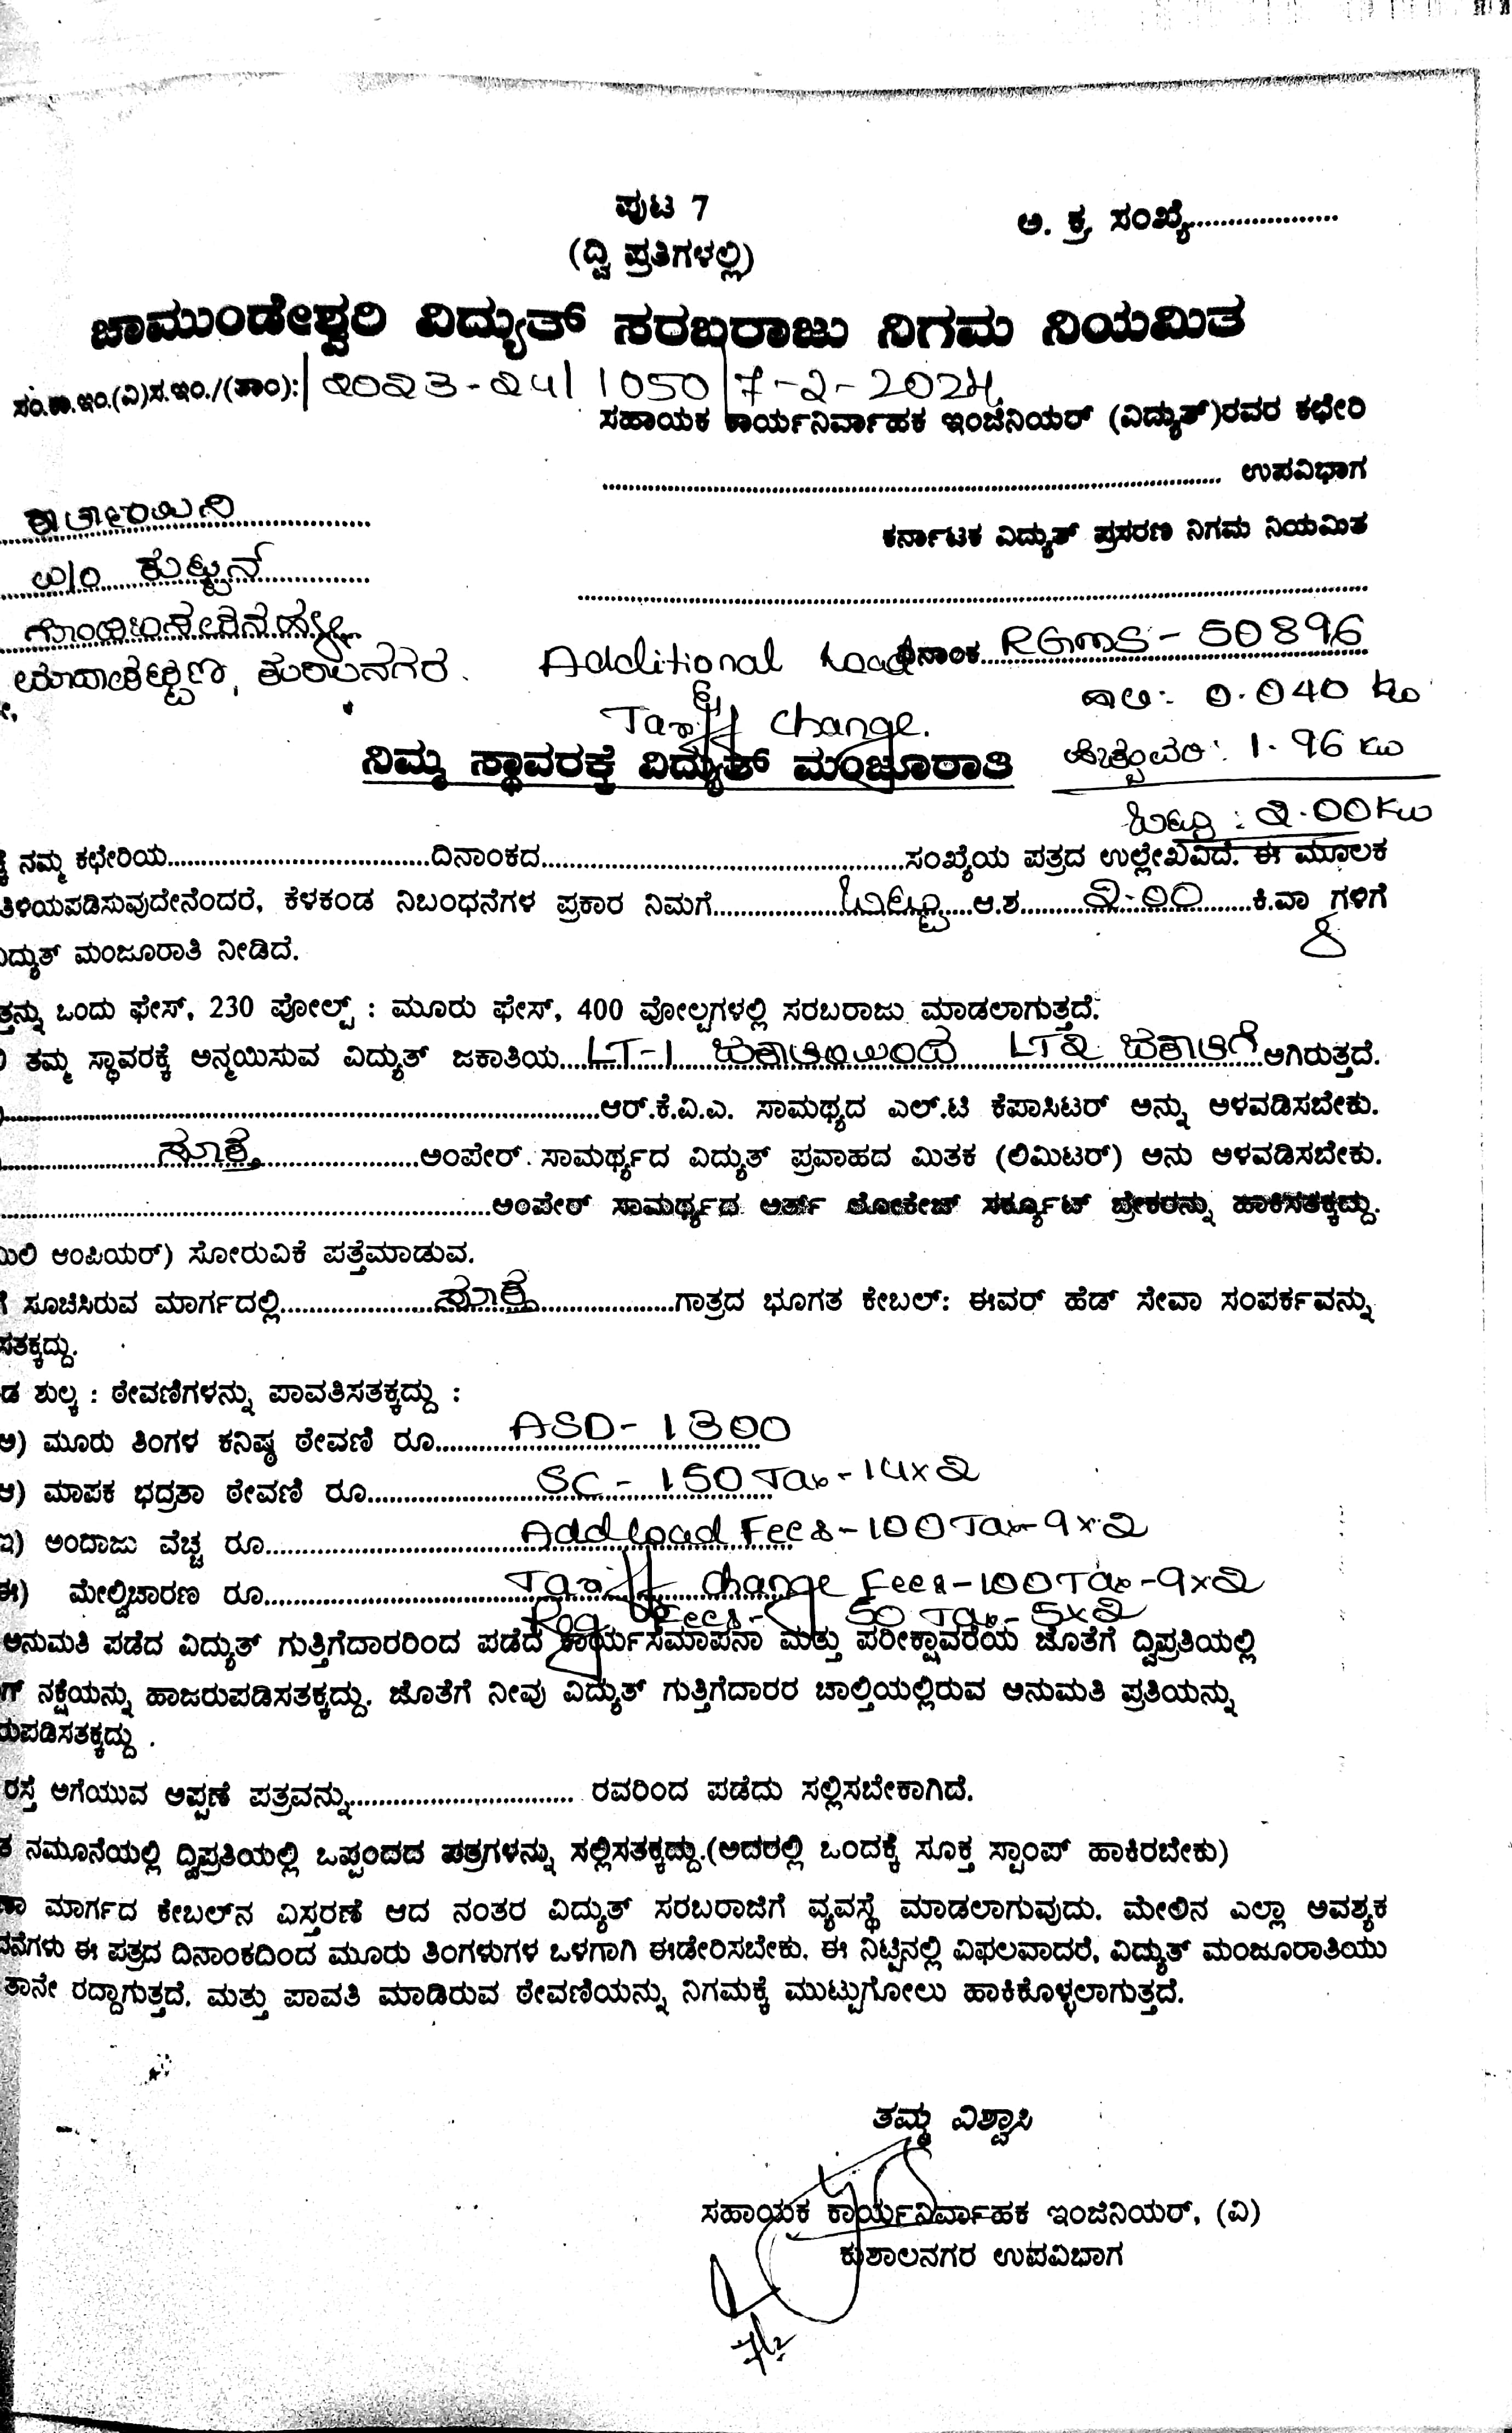 ಪುಟ 7
ಅ. ಕ್ರ. ಸಂಖ್ಯೆ....................
(ದ್ವಿ ಪ್ರತಿಗಳಲ್ಲಿ)
ಚಾಮುಂಡೇಶ್ವರಿ ವಿದ್ಯುತ್ ಸರಬರಾಜು ನಿಗಮ ನಿಯಮಿತ
ಸಂ.ಕಾ.ಇಂ.(ವಿ)ಸ.ಇಂ./(ತಾಂ):| 2023-24 | 1050 | 7-2-2024
ಸಹಾಯಕ ಕಾರ್ಯನಿರ್ವಾಹಕ ಇಂಜಿನಿಯರ್ (ವಿದ್ಯುತ್)ರವರ ಕಛೇರಿ
.................... ಉಪವಿಭಾಗ
ಕರ್ನಾಟಕ ವಿದ್ಯುತ್ ಪ್ರಸರಣ ನಿಗಮ ನಿಯಮಿತ
W/O ಕುಟ್ಟನ್
Additional Load ದಿನಾಂಕ RGMS - 50896
&
ಹಾಲಿ: 0.040 KW
Tariff Change.
ಹೆಚ್ಚುವರಿ: 1.96 KW
ನಿಮ್ಮ ಸ್ಥಾವರಕ್ಕೆ ವಿದ್ಯುತ್ ಮಂಜೂರಾತಿ
ಒಟ್ಟು : 2.00 KW
ನಮ್ಮ ಕಛೇರಿಯ....................ದಿನಾಂಕದ....................ಸಂಖ್ಯೆಯ ಪತ್ರದ ಉಲ್ಲೇಖವಿದೆ. ಈ ಮೂಲಕ
ತಿಳಿಯಪಡಿಸುವುದೇನೆಂದರೆ, ಕೆಳಕಂಡ ನಿಬಂಧನೆಗಳ ಪ್ರಕಾರ ನಿಮಗೆ.......... ಒಟ್ಟು ....ಆ.ಶ.... 2.00 ....ಕಿ.ವಾ ಗಳಿಗೆ
ವಿದ್ಯುತ್ ಮಂಜೂರಾತಿ ನೀಡಿದೆ.
ತ್ತನ್ನು ಒಂದು ಫೇಸ್, 230 ವೋಲ್ಟ್ : ಮೂರು ಫೇಸ್, 400 ವೋಲ್ಟಗಳಲ್ಲಿ ಸರಬರಾಜು ಮಾಡಲಾಗುತ್ತದೆ.
ತಮ್ಮ ಸ್ಥಾವರಕ್ಕೆ ಅನ್ವಯಿಸುವ ವಿದ್ಯುತ್ ಜಕಾತಿಯ.... LT-1 ಜಕಾತಿಯಿಂದ LT2 ಜಕಾತಿಗೆ ಆಗಿರುತ್ತದೆ.
....................ಆರ್.ಕೆ.ವಿ.ಎ. ಸಾಮಥ್ಯದ ಎಲ್.ಟಿ ಕೆಪಾಸಿಟರ್ ಅನ್ನು ಅಳವಡಿಸಬೇಕು.
.......... ಸೂಕ್ತ ..........ಅಂಪೇರ್ ಸಾಮರ್ಥ್ಯದ ವಿದ್ಯುತ್ ಪ್ರವಾಹದ ಮಿತಕ (ಲಿಮಿಟರ್) ಅನು ಅಳವಡಿಸಬೇಕು.
....................ಅಂಪೇರ್ ಸಾಮರ್ಥ್ಯದ ಅರ್ತ್ ಲೋಕೇಜ್ ಸರ್ಕ್ಯೂಟ್ ಬ್ರೇಕರನ್ನು ಹಾಕಿಸತಕ್ಕದ್ದು.
ಮಿಲಿ ಆಂಪಿಯರ್) ಸೋರುವಿಕೆ ಪತ್ತೆಮಾಡುವ.
ಸೂಚಿಸಿರುವ ಮಾರ್ಗದಲ್ಲಿ.......... ಸೂಕ್ತ ..........ಗಾತ್ರದ ಭೂಗತ ಕೇಬಲ್: ಈವರ್ ಹೆಡ್ ಸೇವಾ ಸಂಪರ್ಕವನ್ನು
ಸತಕ್ಕದ್ದು.
ಡ ಶುಲ್ಕ : ಠೇವಣಿಗಳನ್ನು ಪಾವತಿಸತಕ್ಕದ್ದು :
ಅ) ಮೂರು ತಿಂಗಳ ಕನಿಷ್ಠ ಠೇವಣಿ ರೂ.......... ASD - 1300
ಆ) ಮಾಪಕ ಭದ್ರತಾ ಠೇವಣಿ ರೂ.......... SC - 150 Tax - 14x2
ಇ) ಅಂದಾಜು ವೆಚ್ಚ ರೂ.......... Add load Fees - 100 Tax - 9x2
ಈ) ಮೇಲ್ವಿಚಾರಣ ರೂ.......... Tariff Change Fees - 100 Tax - 9x2
Reg Fees - 50 Tax - 5x2
ಅನುಮತಿ ಪಡೆದ ವಿದ್ಯುತ್ ಗುತ್ತಿಗೆದಾರರಿಂದ ಪಡೆದ ಕಾರ್ಯಸಮಾಪನಾ ಮತ್ತು ಪರೀಕ್ಷಾವರೆಯ ಜೊತೆಗೆ ದ್ವಿಪ್ರತಿಯಲ್ಲಿ
ಗ್ ನಕ್ಷೆಯನ್ನು ಹಾಜರುಪಡಿಸತಕ್ಕದ್ದು. ಜೊತೆಗೆ ನೀವು ವಿದ್ಯುತ್ ಗುತ್ತಿಗೆದಾರರ ಚಾಲ್ತಿಯಲ್ಲಿರುವ ಅನುಮತಿ ಪ್ರತಿಯನ್ನು
ರುಪಡಿಸತಕ್ಕದ್ದು .
ರಸ್ತೆ ಅಗೆಯುವ ಅಪ್ಪಣೆ ಪತ್ರವನ್ನು.................... ರವರಿಂದ ಪಡೆದು ಸಲ್ಲಿಸಬೇಕಾಗಿದೆ.
ನಮೂನೆಯಲ್ಲಿ ದ್ವಿಪ್ರತಿಯಲ್ಲಿ ಒಪ್ಪಂದದ ಪತ್ರಗಳನ್ನು ಸಲ್ಲಿಸತಕ್ಕದ್ದು.(ಅದರಲ್ಲಿ ಒಂದಕ್ಕೆ ಸೂಕ್ತ ಸ್ಟಾಂಪ್ ಹಾಕಿರಬೇಕು)
ಮಾರ್ಗದ ಕೇಬಲ್‌ನ ವಿಸ್ತರಣೆ ಆದ ನಂತರ ವಿದ್ಯುತ್ ಸರಬರಾಜಿಗೆ ವ್ಯವಸ್ಥೆ ಮಾಡಲಾಗುವುದು. ಮೇಲಿನ ಎಲ್ಲಾ ಅವಶ್ಯಕ
ನೆಗಳು ಈ ಪತ್ರದ ದಿನಾಂಕದಿಂದ ಮೂರು ತಿಂಗಳುಗಳ ಒಳಗಾಗಿ ಈಡೇರಿಸಬೇಕು. ಈ ನಿಟ್ಟಿನಲ್ಲಿ ವಿಫಲವಾದರೆ, ವಿದ್ಯುತ್ ಮಂಜೂರಾತಿಯು
ತಾನೇ ರದ್ದಾಗುತ್ತದೆ. ಮತ್ತು ಪಾವತಿ ಮಾಡಿರುವ ಠೇವಣಿಯನ್ನು ನಿಗಮಕ್ಕೆ ಮುಟ್ಟುಗೋಲು ಹಾಕಿಕೊಳ್ಳಲಾಗುತ್ತದೆ.
ತಮ್ಮ ವಿಶ್ವಾಸಿ
ಸಹಾಯಕ ಕಾರ್ಯನಿರ್ವಾಹಕ ಇಂಜಿನಿಯರ್, (ವಿ)
ಕುಶಾಲನಗರ ಉಪವಿಭಾಗ
7/2